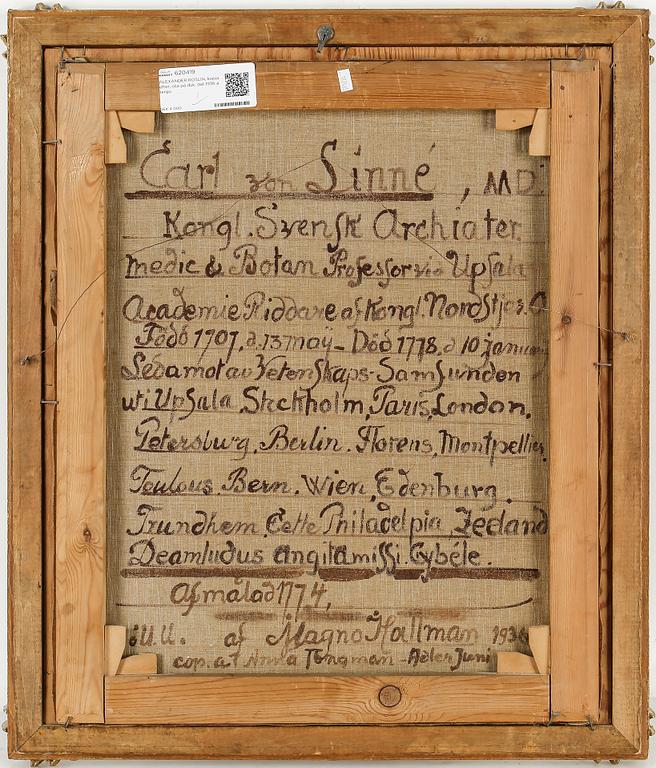 620419
ALEXANDER ROSLIN, kopia
efter, olja på duk, dat 1936 a
tergo.
Carl von Linné, MD:
Kongl. Svensk Archiater.
medic & Botan Professor vid Upsala
Academie Riddare af Kongl. Nordstjer. O
Född 1707. d. 13 maÿ - Död 1778. d 10 january
Ledamot av Vetenskaps-Samfunden
uti Upsala, Stockholm, Paris, London,
Petersburg, Berlin. Florens, Montpellier,
Toulous, Bern. Wien, Edenburg.
Trundhem, Celle Philadelpia, Zeeland
Deamludus angitamissi. Cybéle.
Afmålad 1774,
U.U. af Magno Hallman 1936
cop. af Anna Tengman-Adler Juni